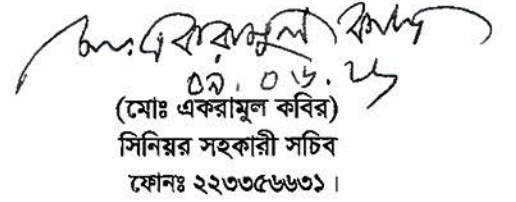 মোঃ একরামুল কবির
০৯.০৬.২৬
(মোঃ একরামুল কবির)
সিনিয়র সহকারী সচিব
ফোনঃ ২২৩৩৫৬৬৩১।